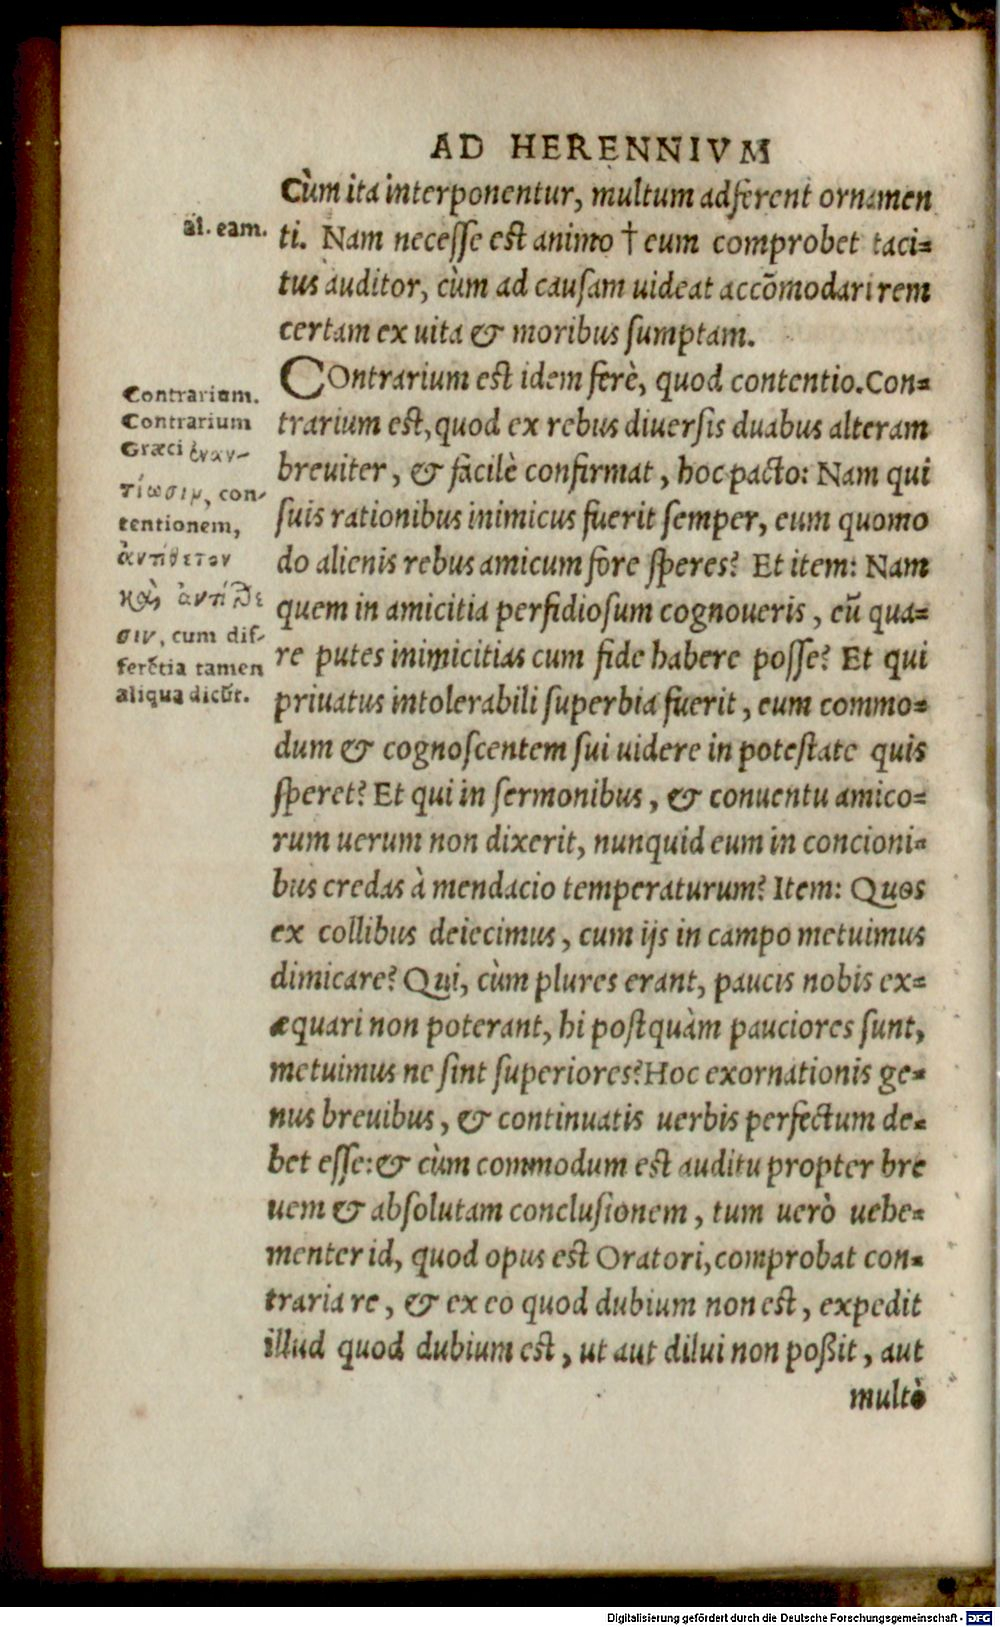 AD HERENNIVM
Cùm ita interponentur, multum adferent ornamen
ti. Nam necesse est animo † eum comprobet taci=
tus auditor, cùm ad causam uideat accōmodari rem
certam ex uita & moribus sumptam.
COntrarium est idem ferè, quod contentio. Con=
trarium est, quod ex rebus diuersis duabus alteram
breuiter, & facilè confirmat, hoc pacto: Nam qui
suis rationibus inimicus fuerit semper, eum quomo
do alienis rebus amicum fore speres? Et item: Nam
quem in amicitia perfidiosum cognoueris, eū qua=
re putes inimicitias cum fide habere posse? Et qui
priuatus intolerabili superbia fuerit, eum commo=
dum & cognoscentem sui uidere in potestate quis
speret? Et qui in sermonibus, & conuentu amico=
rum uerum non dixerit, nunquid eum in concioni=
bus credas à mendacio temperaturum? Item: Quos
ex collibus deiecimus, cum ijs in campo metuimus
dimicare? Qui, cùm plures erant, paucis nobis ex=
æquari non poterant, hi postquàm pauciores sunt,
metuimus ne sint superiores? Hoc exornationis ge=
nus breuibus, & continuatis uerbis perfectum de=
bet esse: & cùm commodum est auditu propter bre
uem & absolutam conclusionem, tum uerò uehe=
menter id, quod opus est Oratori, comprobat con=
traria re, & ex eo quod dubium non est, expedit
illud quod dubium est, ut aut dilui non poßit, aut
multò
al. eam.
Contrarium.
Contrarium
Græci ἐναν-
τίωσιν, con-
tentionem,
ἀντίθετον
καὶ ἀντίθε
σιν, cum dif-
ferētia tamen
aliqua dicūt.
Digitalisierung gefördert durch die Deutsche Forschungsgemeinschaft - DFG